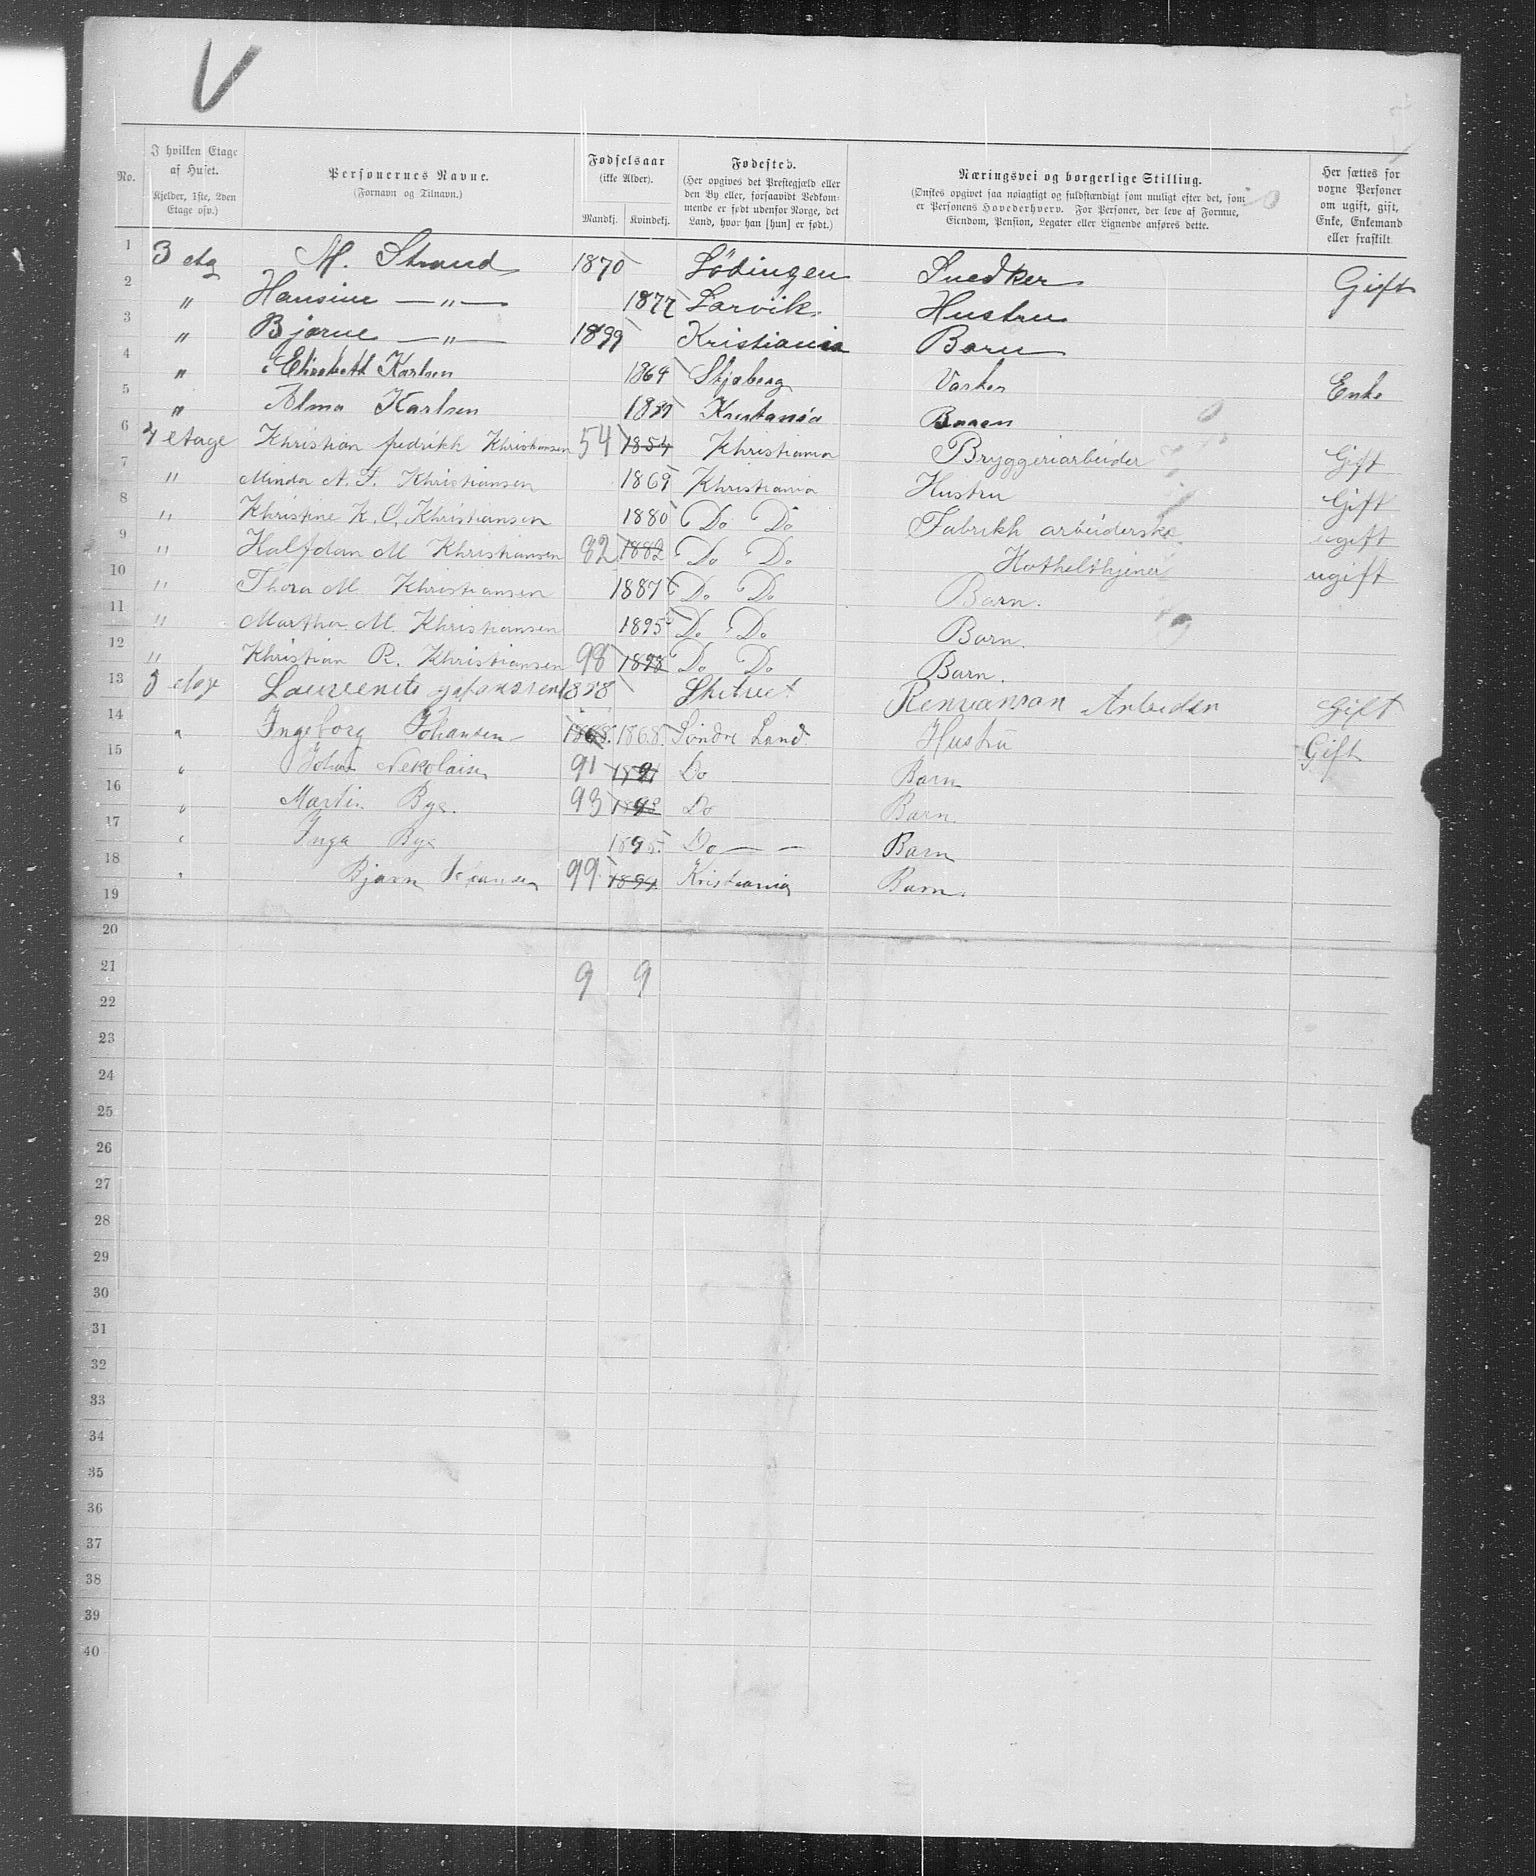 V
No.
I hvilken Etage af Huset. Kjelder, 1ste, 2den Etage osv.)
Personernes Navne. (Fornavn og Tilnavn.)
Fødselsaar (ikke Alder). Mandkj. Kvindekj.
Fødested. (Her opgives det Prestegjæld eller den By eller, forsaavidt Vedkommende er født udenfor Norge, det Land, hvor han [hun] er født.)
Næringsvei og borgerlige Stilling. (Ønskes opgivet saa nøiagtigt og fuldstændigt som muligt efter det, som er Personens Hovederhverv. For Personer, der leve af Formue, Eiendom, Pension, Legater eller Lignende anføres dette.
Her sættes for voxne Personer om ugift, gift, Enke, Enkemand eller fraskilt
1 3 etg M. Strand 1870 Lödingen Snedker Gift
2 " Hansine —"— 1877 Larvik Hustru
3 " Bjarne —"— 1899 Kristiania Barn
4 " Elisabeth Karlsen 1864 Skjeberg Vasker Enke
5 " Alma Karlsen Kristania Baren
6 4 etage Khristian fredrikh Khristiansen 54 1854 Khristiania Bryggeriarbeider Gift
7 " Minda A. F. Khristiansen 1869 Khristiania Hustru Gift
8 " Khristine K. O. Khristiansen 1880 Do Do Fabrikh arbeiderske ugift
9 " Halfdan M Khristiansen 82 1882 Do Do Hothelthjener ugift
10 " Thora M. Khristiansen 1887 Do Do Barn.
11 " Martha M. Khristiansen 1895 Do Do Barn.
12 " Khristian R. Khristiansen 98 1898 Do Do Barn.
13 etage 1858 Renvanson Arbeider Gift
14 " Ingeborg Johansen 1868. 1868. Söndre Land. Hustrü Gift
15 " Johan Nekolaisen 91 1891 Do Barn
16 " Martin Bye. 93 Do Barn.
17 " Inga Bye 1895. Do — — Barn
18 " Bjarn Johansen 99 1899. Kristiania Barn.
19
20
21 9 9
22
23
24
25
26
27
28
29
30
31
32
33
34
35
36
37
38
39
40